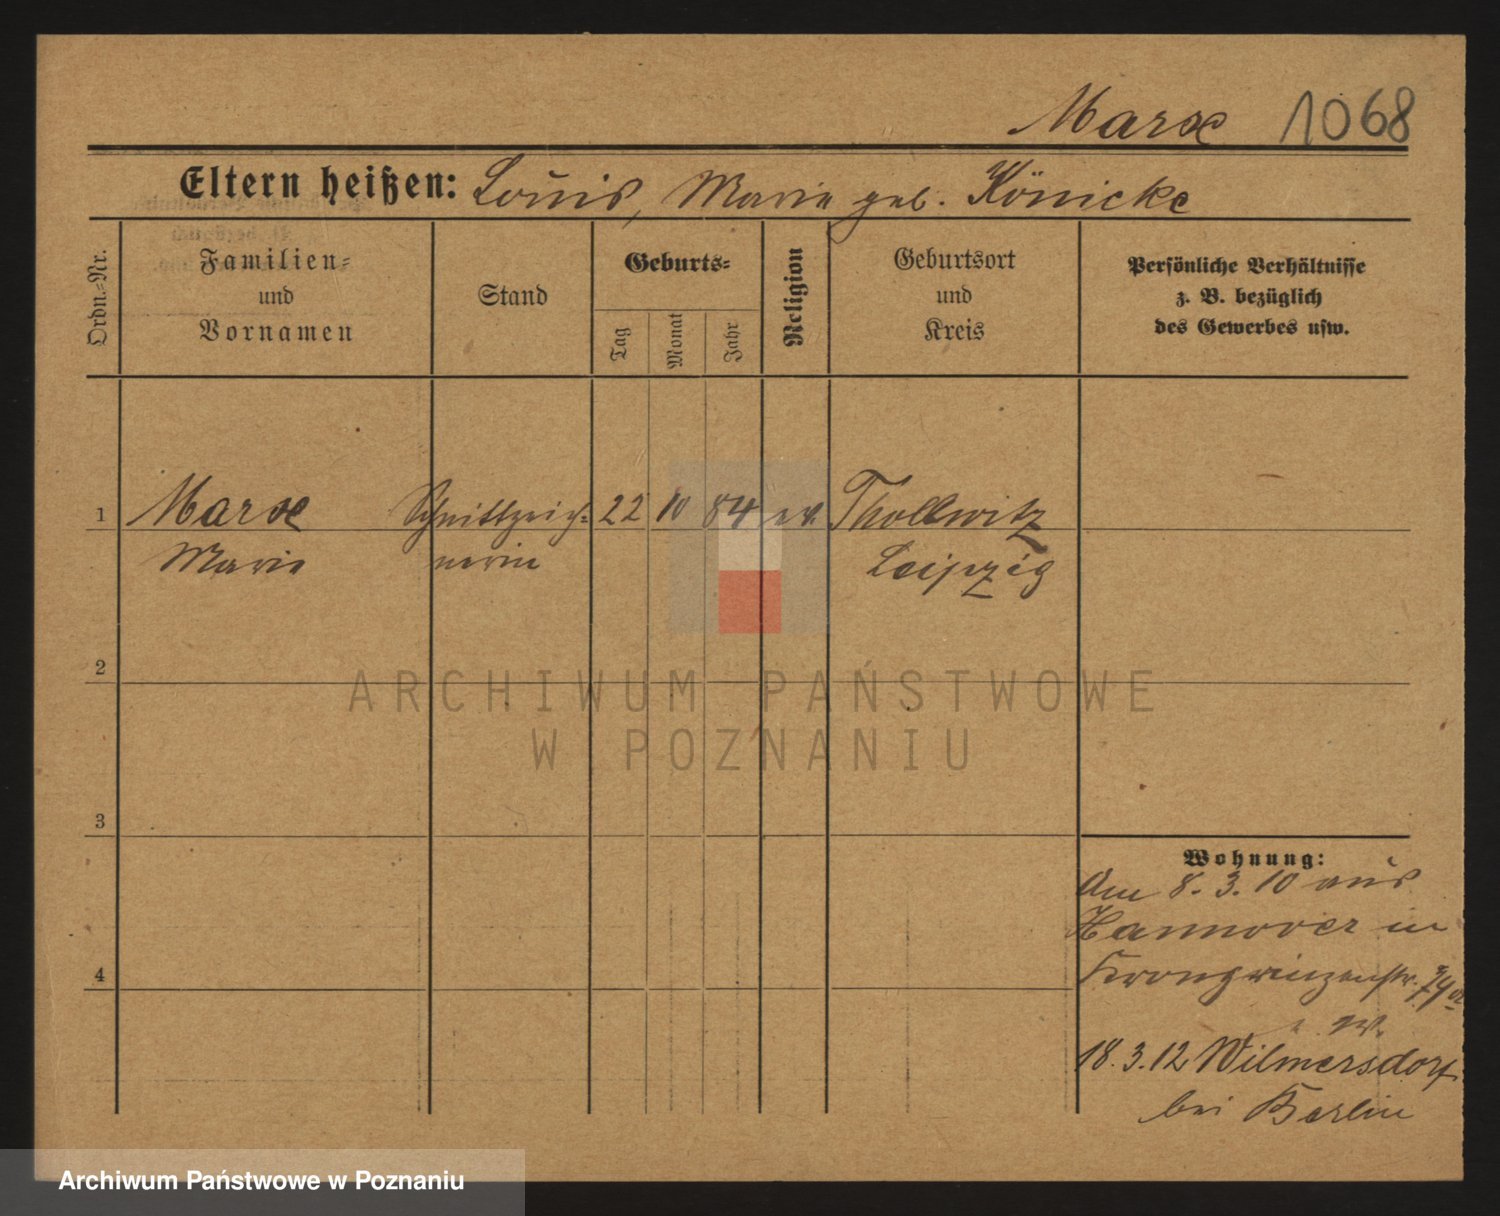 Marx 1068
Eltern heißen: Louis, Marie geb. Könicke
Ordn.-Nr.
Familien-
und
Vornamen
Stand
Geburts-
Tag
Monat
Jahr
Religion
Geburtsort
und
Kreis
Persönliche Verhältnisse
z. B. bezüglich
des Gewerbes usw.
1 Marx Schnittzeich- 22 10 84 ev. Thallwitz
Marie nerin Leipzig
2
ARCHIWUM PAŃSTWOWE
W POZNANIU
3
Wohnung:
Am 8. 3. 10 aus
Hannover in
4
Kronprinzenstr.
18. 3. 12 Wilmersdorf
bei Berlin
Archiwum Państwowe w Poznaniu